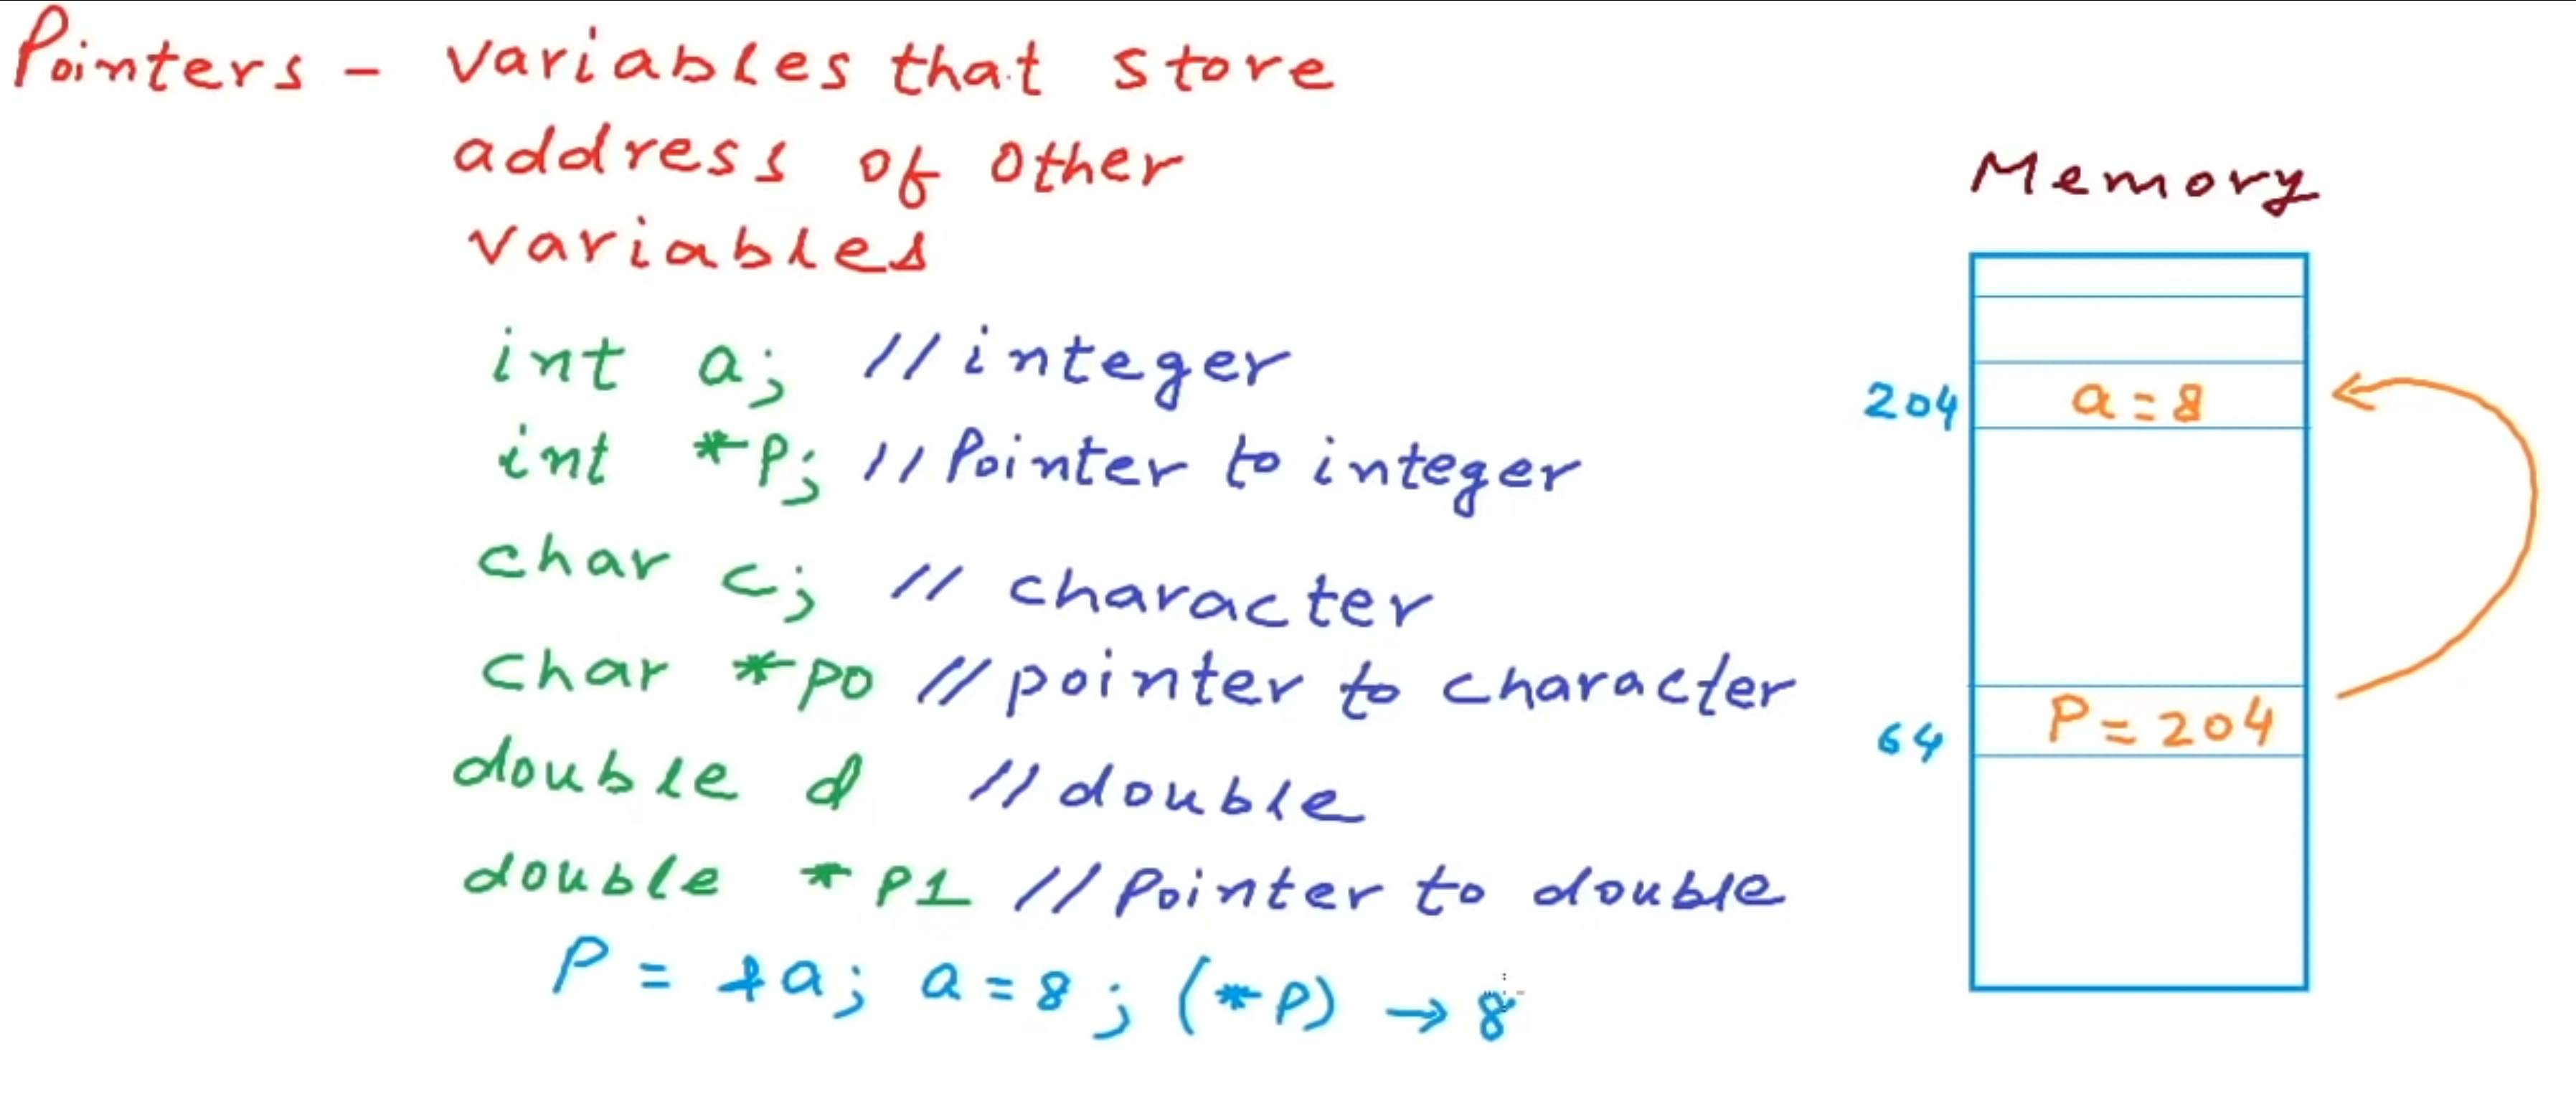 Pointers - variables that store
address of other
variables
Memory
int a; //integer
204 a = 8
int *P; //Pointer to integer
char c; // character
char *po //pointer to character
64 P = 204
double d //double
double *P1 //Pointer to double
P = &a; a = 8; (*P) → 8